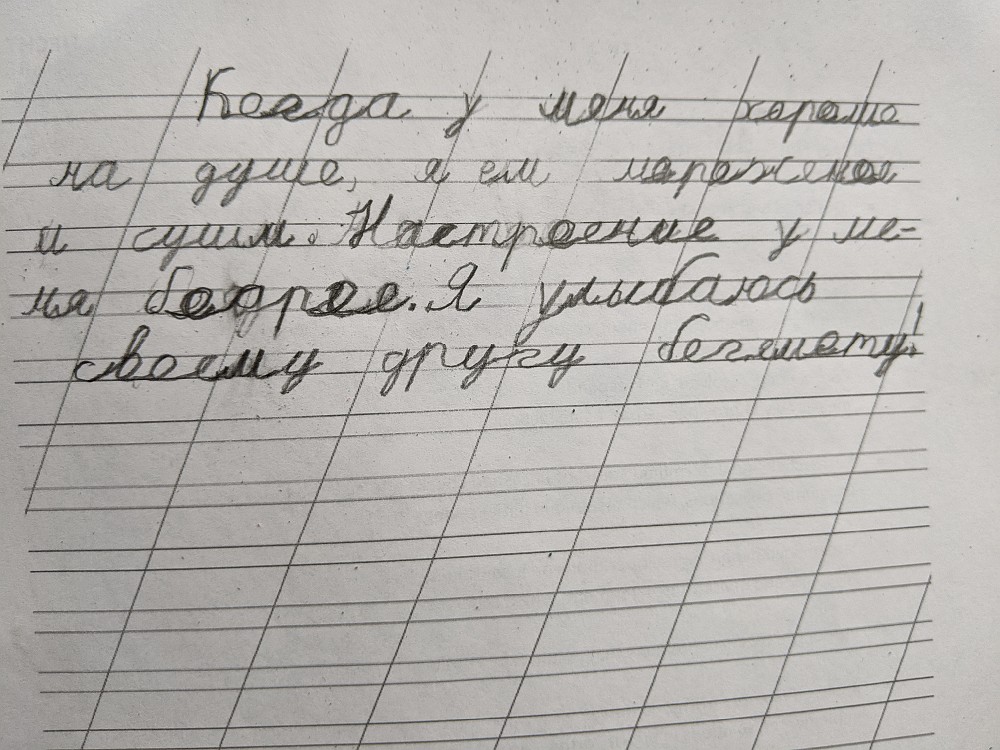 Когда у меня хорошо
на душе, я ем мороженое
и суши. Настроение у ме-
ня бодрое. Я улыбаюсь
своему другу бегемоту!